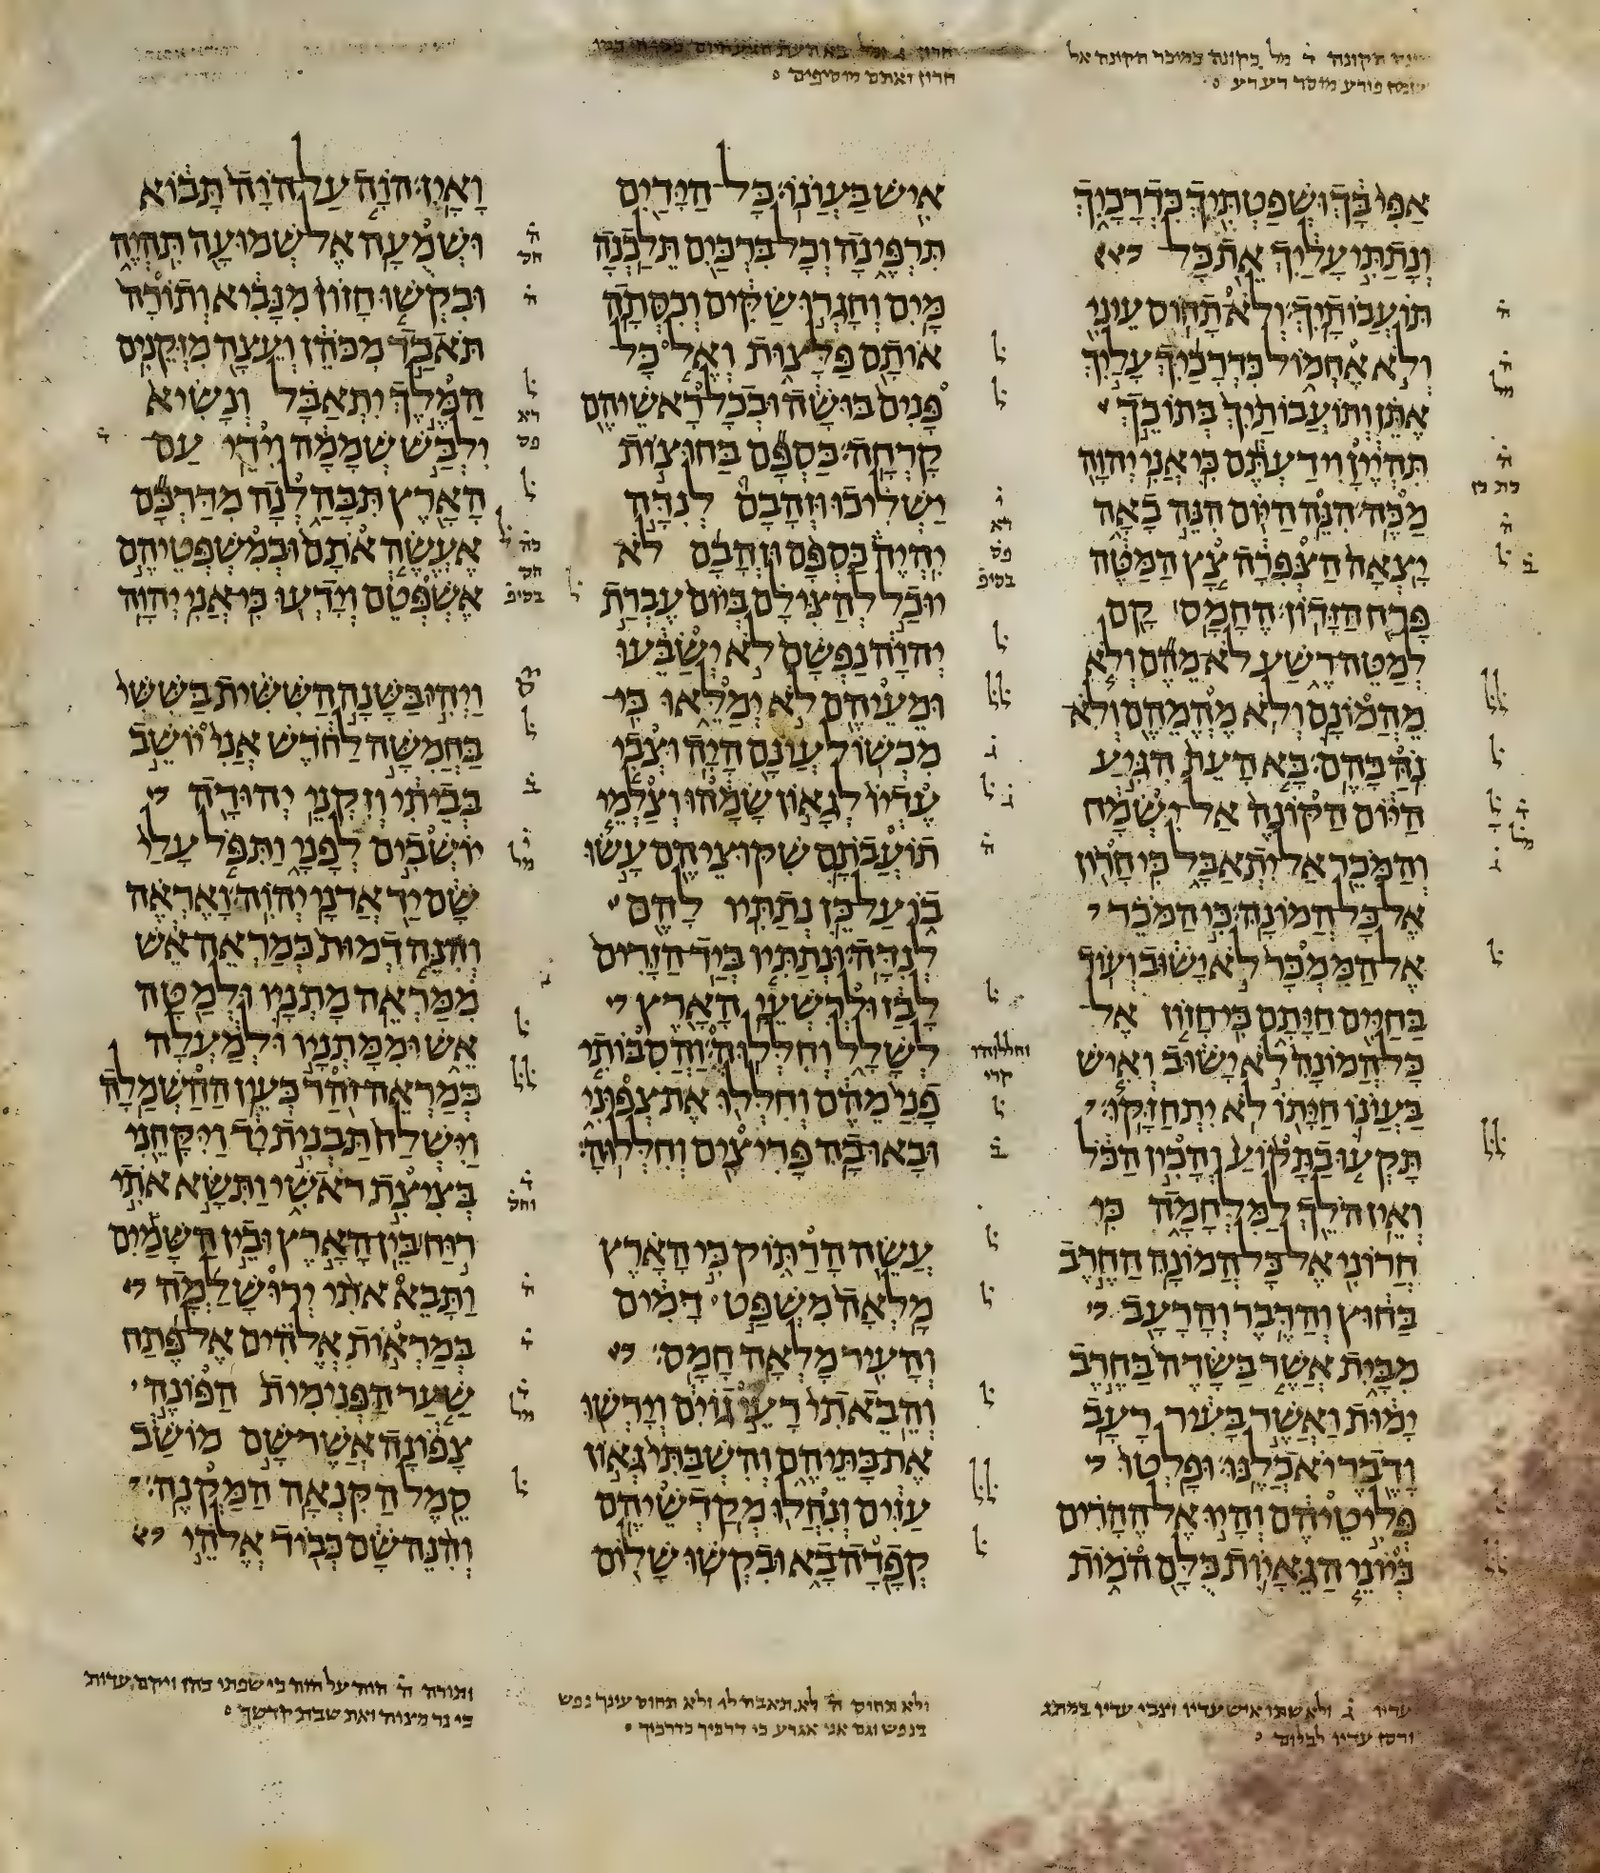 הקונה ד מל כקונה כמוכר הקונה אל
פורע מוסר רע רע
אפי בך ושפטתיך כדרכיך
ונתתי עליך את כל
תועבותיך ולא תחוס עיני
ולא אחמול כי דרכיך עליך
אתן ותועבותיך בתוכך
תהיין וידעתם כי אני יהוה
מכה הנה היום הנה באה
יצאה הצפרה צץ המטה
פרח הזדון החמס קם
למטה רשע לא מהם ולא
מהמונם ולא מהמהם ולא
נה בהם בא העת הגיע
היום הקונה אל ישמח
והמכר אל יתאבל כי חרון
אל כל המונה כי המכר
אל הממכר לא ישוב ועוד
בחיים חיתם כי חזון אל
כל המונה לא ישוב ואיש
בעונו חיתו לא יתחזקו
תקעו בתקוע והכין הכל
ואין הלך למלחמה כי
חרוני אל כל המונה החרב
בחוץ והדבר והרעב
מבית אשר בשדה בחרב
ימות ואשר בעיר רעב
ודבר יאכלנו ופלטו
פליטיהם והיו אל ההרים
כיוני הגאיות כלם המות
עדיו ג ולא שתו איש עדיו וצבי עדיו במתג
ורסן עדיו לבלום
חרון ואתם מוסיפים
איש בעונו כל הידים
תרפינה וכל ברכים תלכנה
מים וחגרו שקים וכסתה
אותם פלצות ואל כל
פנים בושה ובכל ראשיהם
קרחה כספם בחוצות
ישליכו וזהבם לנדה
יהיה כספם וזהבם לא
יוכל להצילם ביום עברת
יהוה נפשם לא ישבעו
ומעיהם לא ימלאו כי
מכשול עונם היה וצבי
עדיו לגאון שמהו וצלמי
תועבתם שקוציהם עשו
בו על כן נתתיו להם
לנדה ונתתיו ביד הזרים
לבז ולרשעי הארץ
לשלל וחללוה והסבותי
פני מהם וחללו את צפוני
ובאו בה פריצים וחללוה
עשה הרתוק כי הארץ
מלאה משפט דמים
והעיר מלאה חמס
והבאתי רעי גוים וירשו
את בתיהם והשבתי גאון
עזים ונחלו מקדשיהם
קפדה בא ובקשו שלום
ולא תחוס ה לא תאבה לו ולא תחוס עינך נפש
בנפש וגם אני אגרע כי דרכיך כדרכיך
ואין הוה על הוה תבוא
ושמעה אל שמועה תהיה
ובקשו חזון מנביא ותורה
תאבד מכהן ועצה מזקנים
המלך יתאבל ונשיא
ילבש שממה וידי עם
הארץ תבהלנה מדרכם
אעשה אתם ובמשפטיהם
אשפטם וידעו כי אני יהוה
ויהי בשנה הששית בששי
בחמשה לחדש אני יושב
בביתי וזקני יהודה
יושבים לפני ותפל עלי
שם יד אדני יהוה ואראה
והנה דמות כמראה אש
ממראה מתניו ולמטה
אש וממתניו ולמעלה
כמראה זהר כעין החשמלה
וישלח תבנית יד ויקחני
בציצת ראשי ותשא אתי
רוח בין הארץ ובין השמים
ותבא אתי ירושלמה
במראות אלהים אל פתח
שער הפנימית הפונה
צפונה אשר שם מושב
סמל הקנאה המקנה
והנה שם כבוד אלהי
ותורה ה הוה על הוה כי שפתי כהן ויקם עדות
כי נר מצוה ואת שבת קדשך